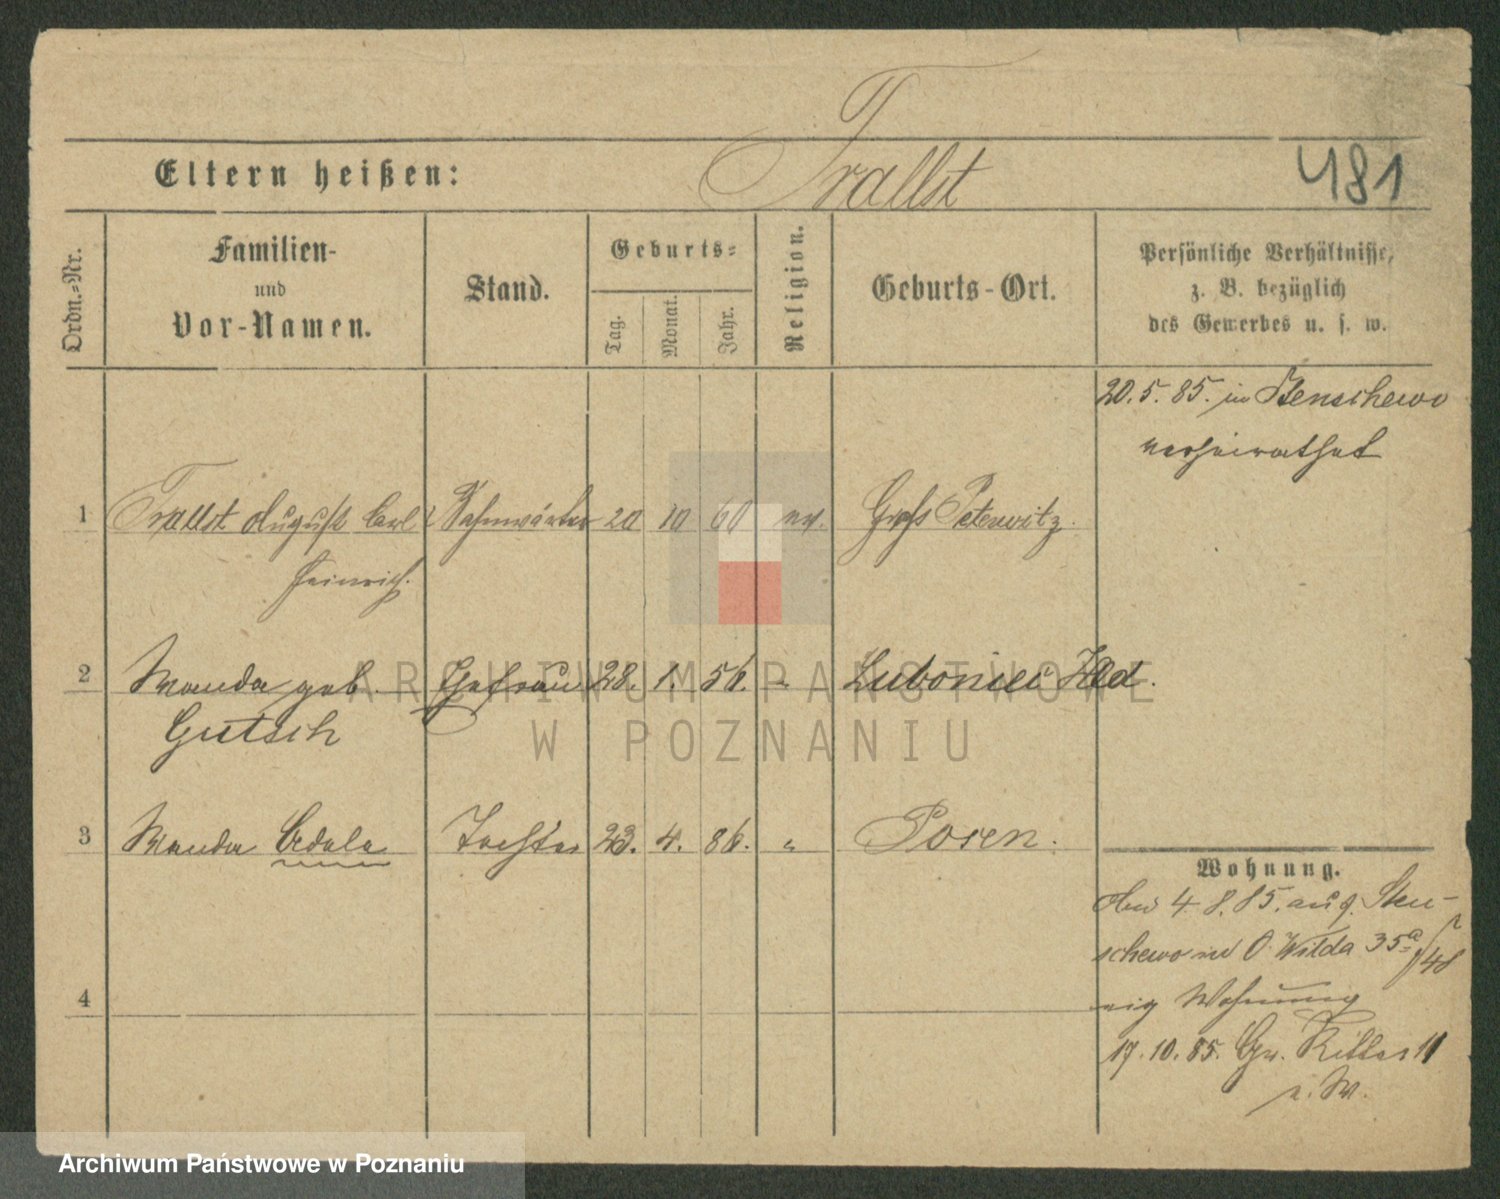 Eltern heißen: Trallst 481
Ordn.-Nr.
Familien-
und
Vor-Namen.
Stand.
Geburts-
Tag.
Monat.
Jahr.
Religion.
Geburts-Ort.
Persönliche Verhältnisse,
z. B. bezüglich
des Gewerbes u. s. w.
20. 5. 85. in Stenschewo
verheirathet
1 Trallst August Carl Bahnwärter 20 10 60 ev. Groß Peterwitz.
Heinrich.
2 Wanda geb. Ehefrau 28. 1. 56. "
Gutsch
3 Wanda Adele Tochter 23. 4. 86. " Posen.
Wohnung.
4. 8. 85. aus Sten-
schewo O. Wilda 35a/48
Wohnung
17. 10. 85. Gr. Ritter 11
4
ARCHIWUM PAŃSTWOWE
W POZNANIU
Archiwum Państwowe w Poznaniu